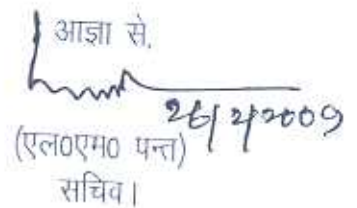 आज्ञा से,
26/2/2009
(एल0एम0 पन्त)
सचिव।